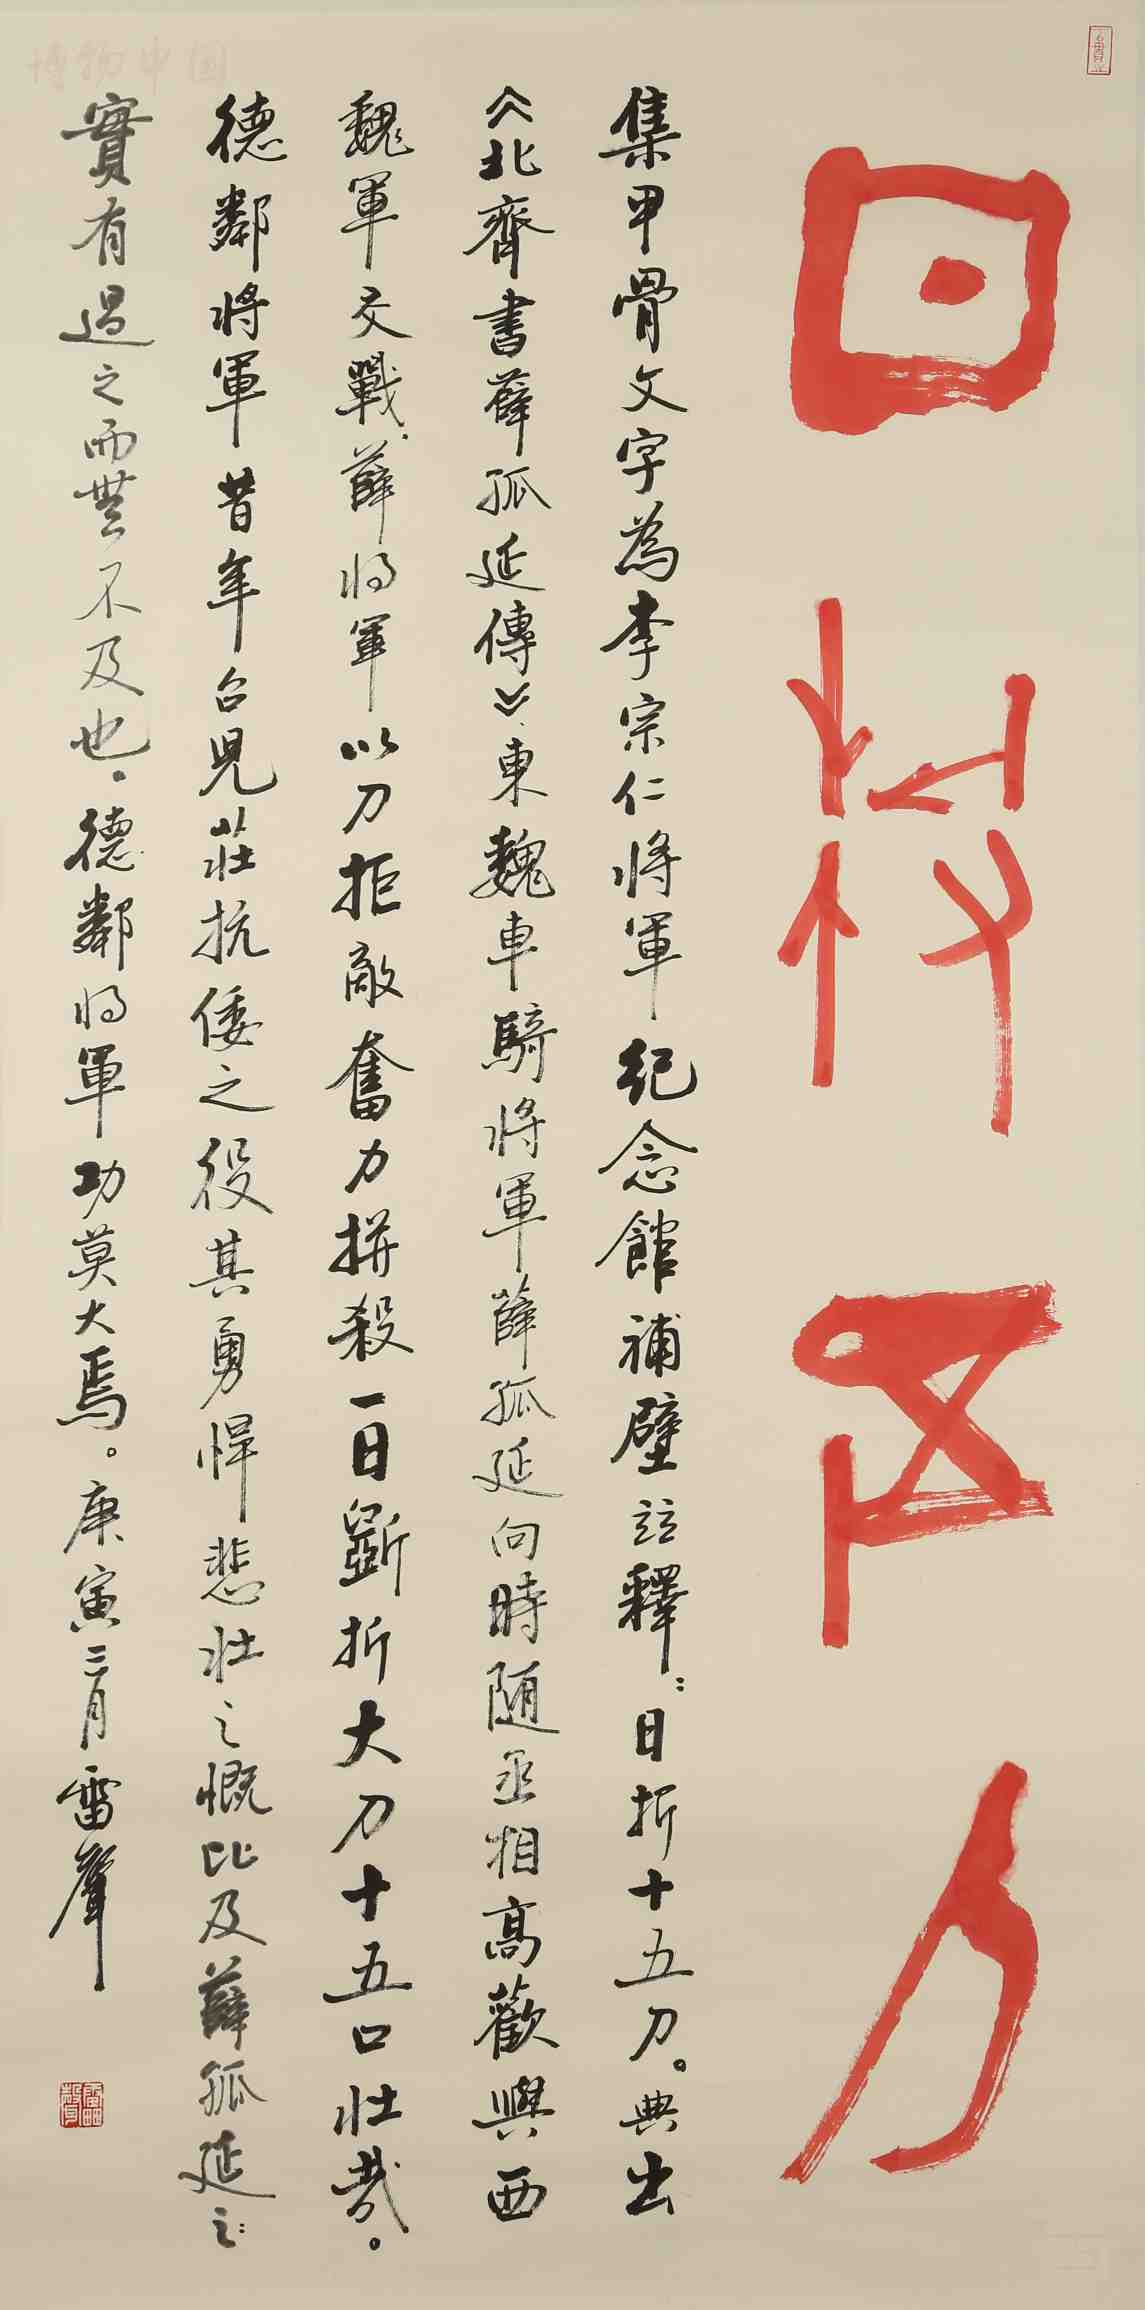 日折十五刀
集甲骨文字為李宗仁將軍紀念館補壁註釋：日折十五刀。典出
《北齊書薛孤延傳》，東魏車騎將軍薛孤延向時随丞相高歡與西
魏軍交戰，薛将軍以刀拒敵奮力拼殺一日斷折大刀十五口壯哉。
德鄰將軍昔年台兒莊抗倭之役其勇悍悲壯之慨比及薛孤延之：
實有過之而無不及也。德鄰将軍功莫大焉。庚寅三月雷聲
博物中国